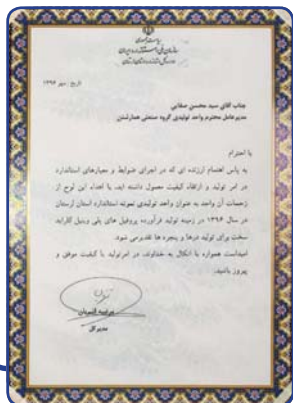 ریاست جمهوری
سازمان ملی استاندارد ایران
تاریخ : مهر ۱۳۹۶
جناب آقای سید محسن صفایی
مدیرعامل محترم واحد تولیدی گروه صنعتی همارشتن
با احترام
به پاس اهتمام ارزنده ای که در اجرای ضوابط و معیارهای استاندارد
در امر تولید و ارتقاء کیفیت معمول داشته اید، با اهداء این لوح از
زحمات آن واحد به عنوان واحد تولیدی نمونه استاندارد استان لرستان
در سال ۱۳۹۶ در زمینه تولید فرآورده پروفیل های پلی وینیل کلراید
سخت برای تولید درها و پنجره ها تقدیر می شود.
امیداست همواره با اتکال به خداوند، در امر تولید با کیفیت موفق و
پیروز باشید.
مدیر کل